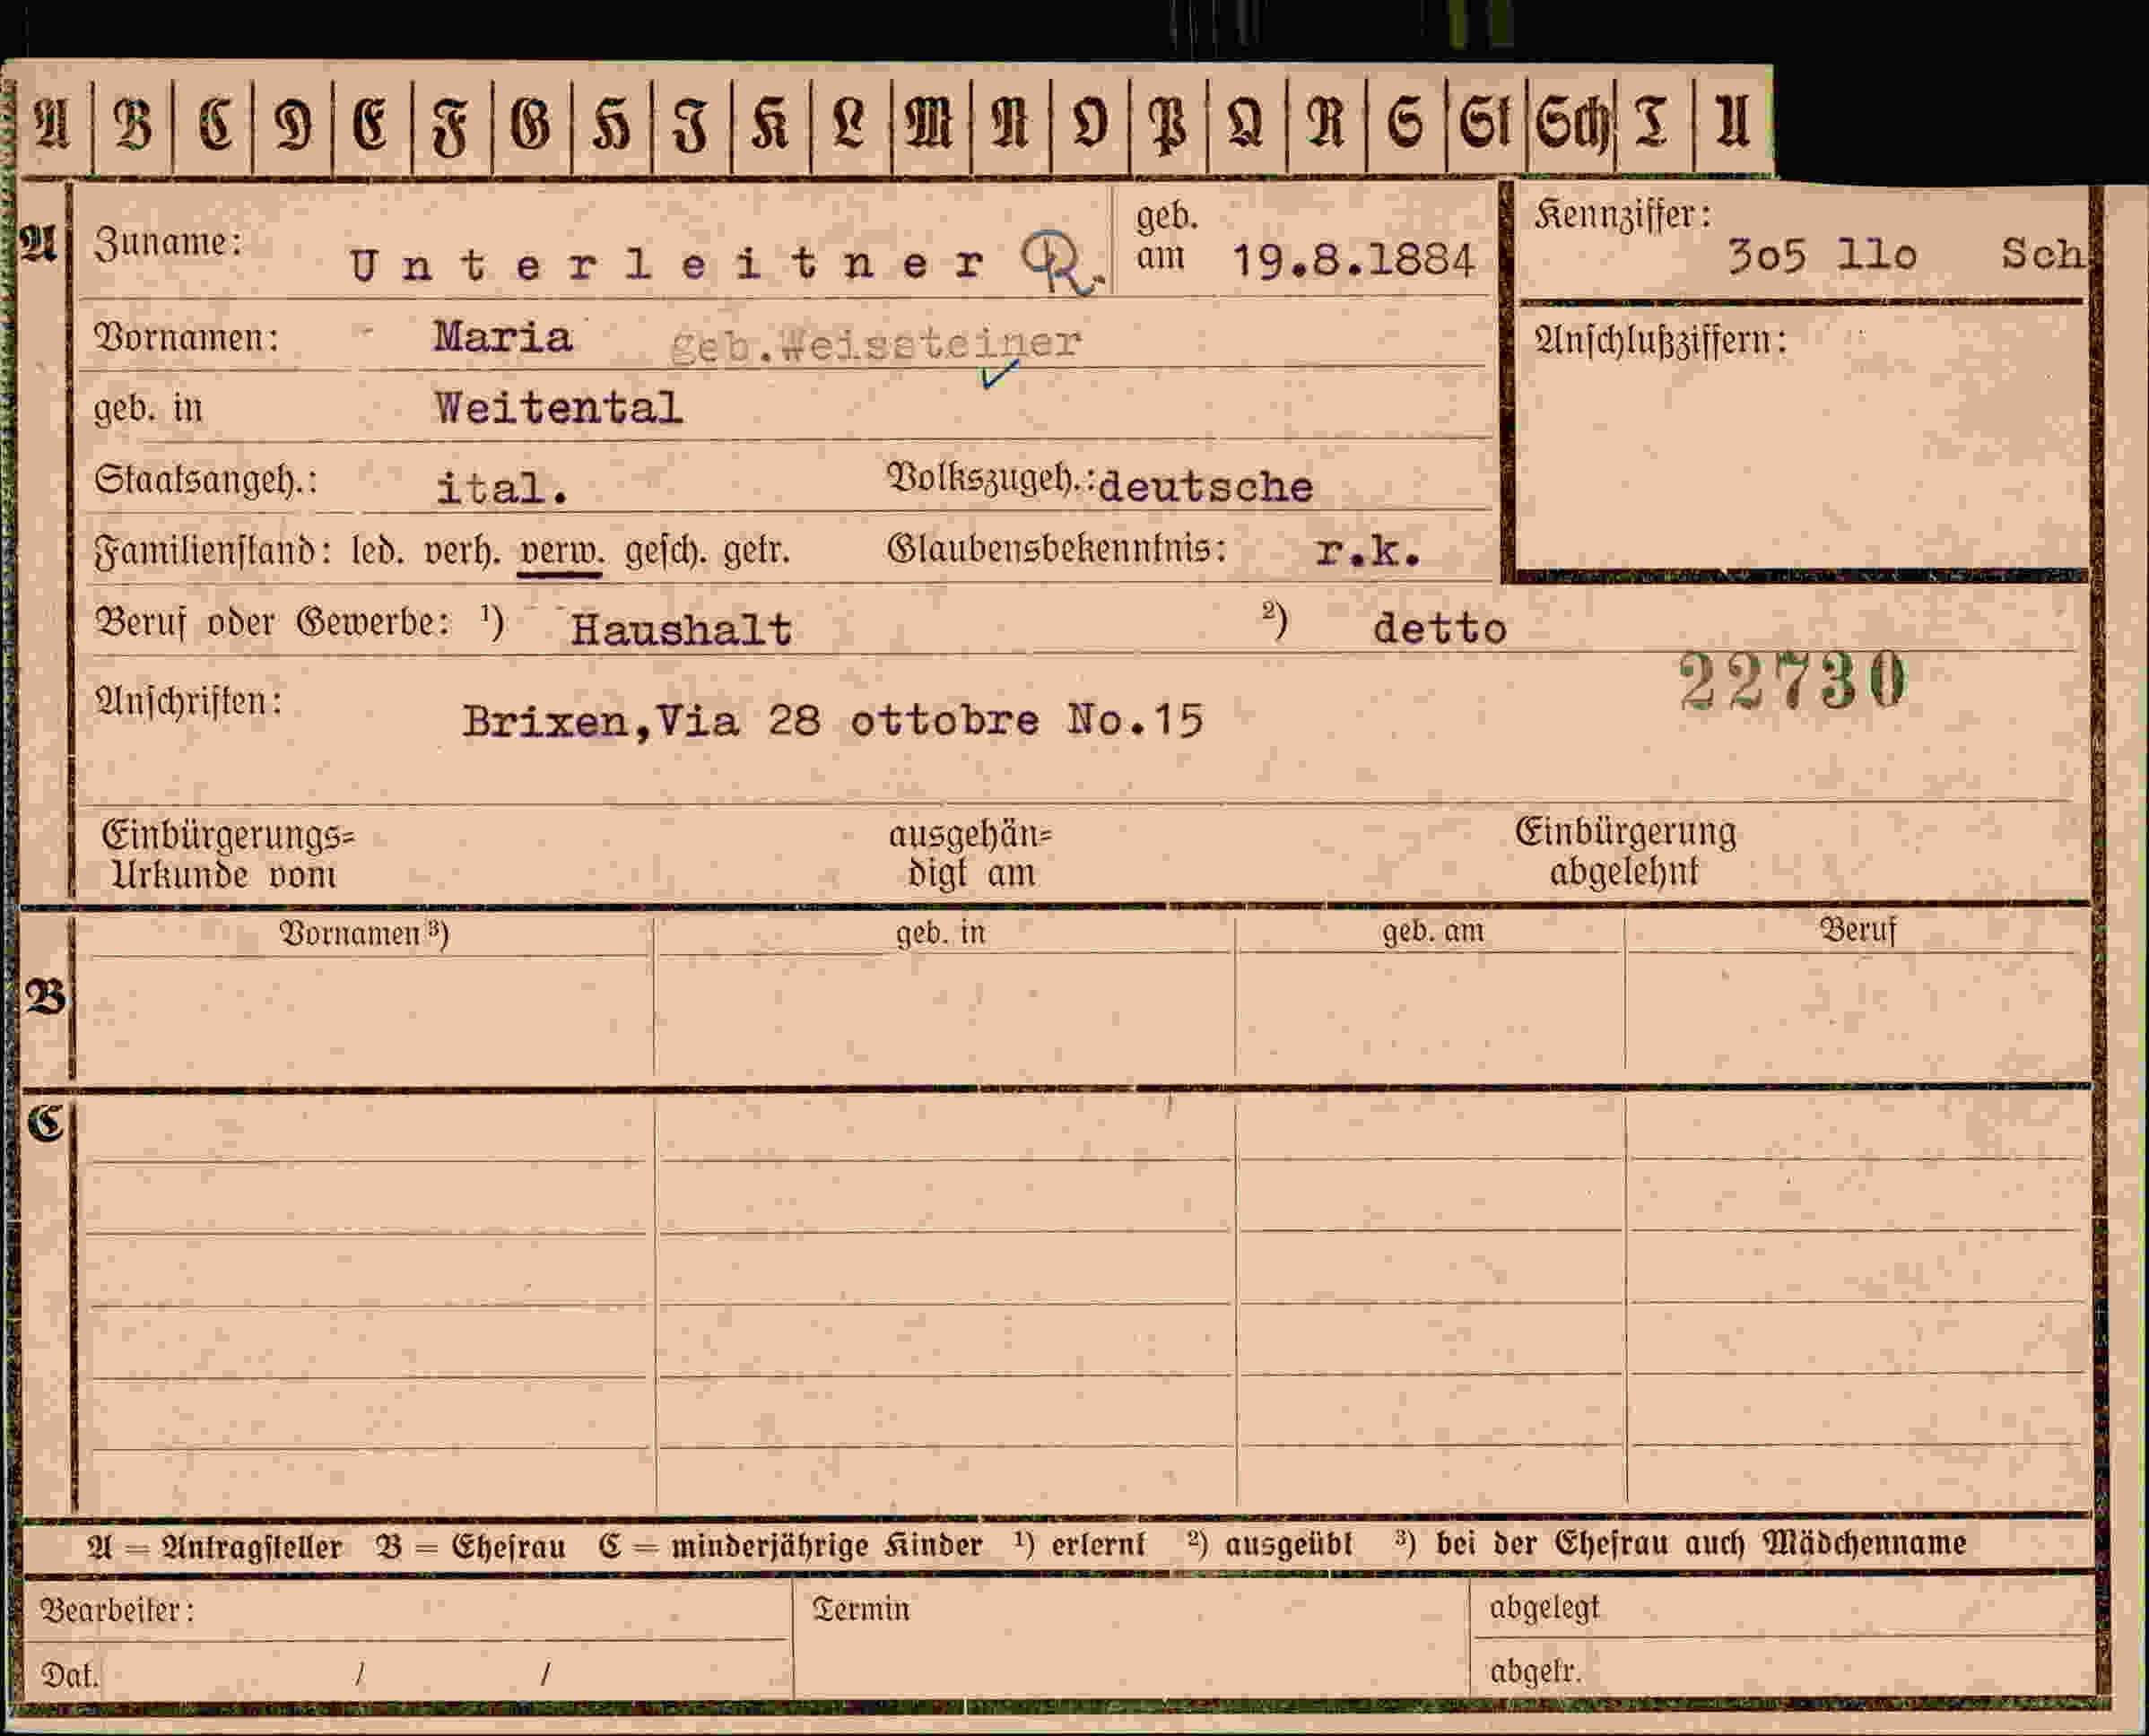 A B C D E F G H I K L M N O P Q R S St Sch T U
A Zuname: Unterleitner R. geb. am 19.8.1884 Kennziffer: 3o5 llo Sch
Vornamen: Maria geb.Weissteiner Anschlußziffern:
geb. in Weitental
Staatsangeh.: ital. Volkszugeh.: deutsche
Familienstand: led. verh. verw. gesch. getr. Glaubensbekenntnis: r.k.
Beruf oder Gewerbe: ¹) Haushalt ²) detto
22730
Anschriften: Brixen,Via 28 ottobre No.15
Einbürgerungs= ausgehän= Einbürgerung
Urkunde vom digt am abgelehnt
Vornamen ³) geb. in geb. am Beruf
B
C
A = Antragsteller B = Ehefrau C = minderjährige Kinder ¹) erlernt ²) ausgeübt ³) bei der Ehefrau auch Mädchenname
Bearbeiter: Termin abgelegt
Dat. / / abgetr.